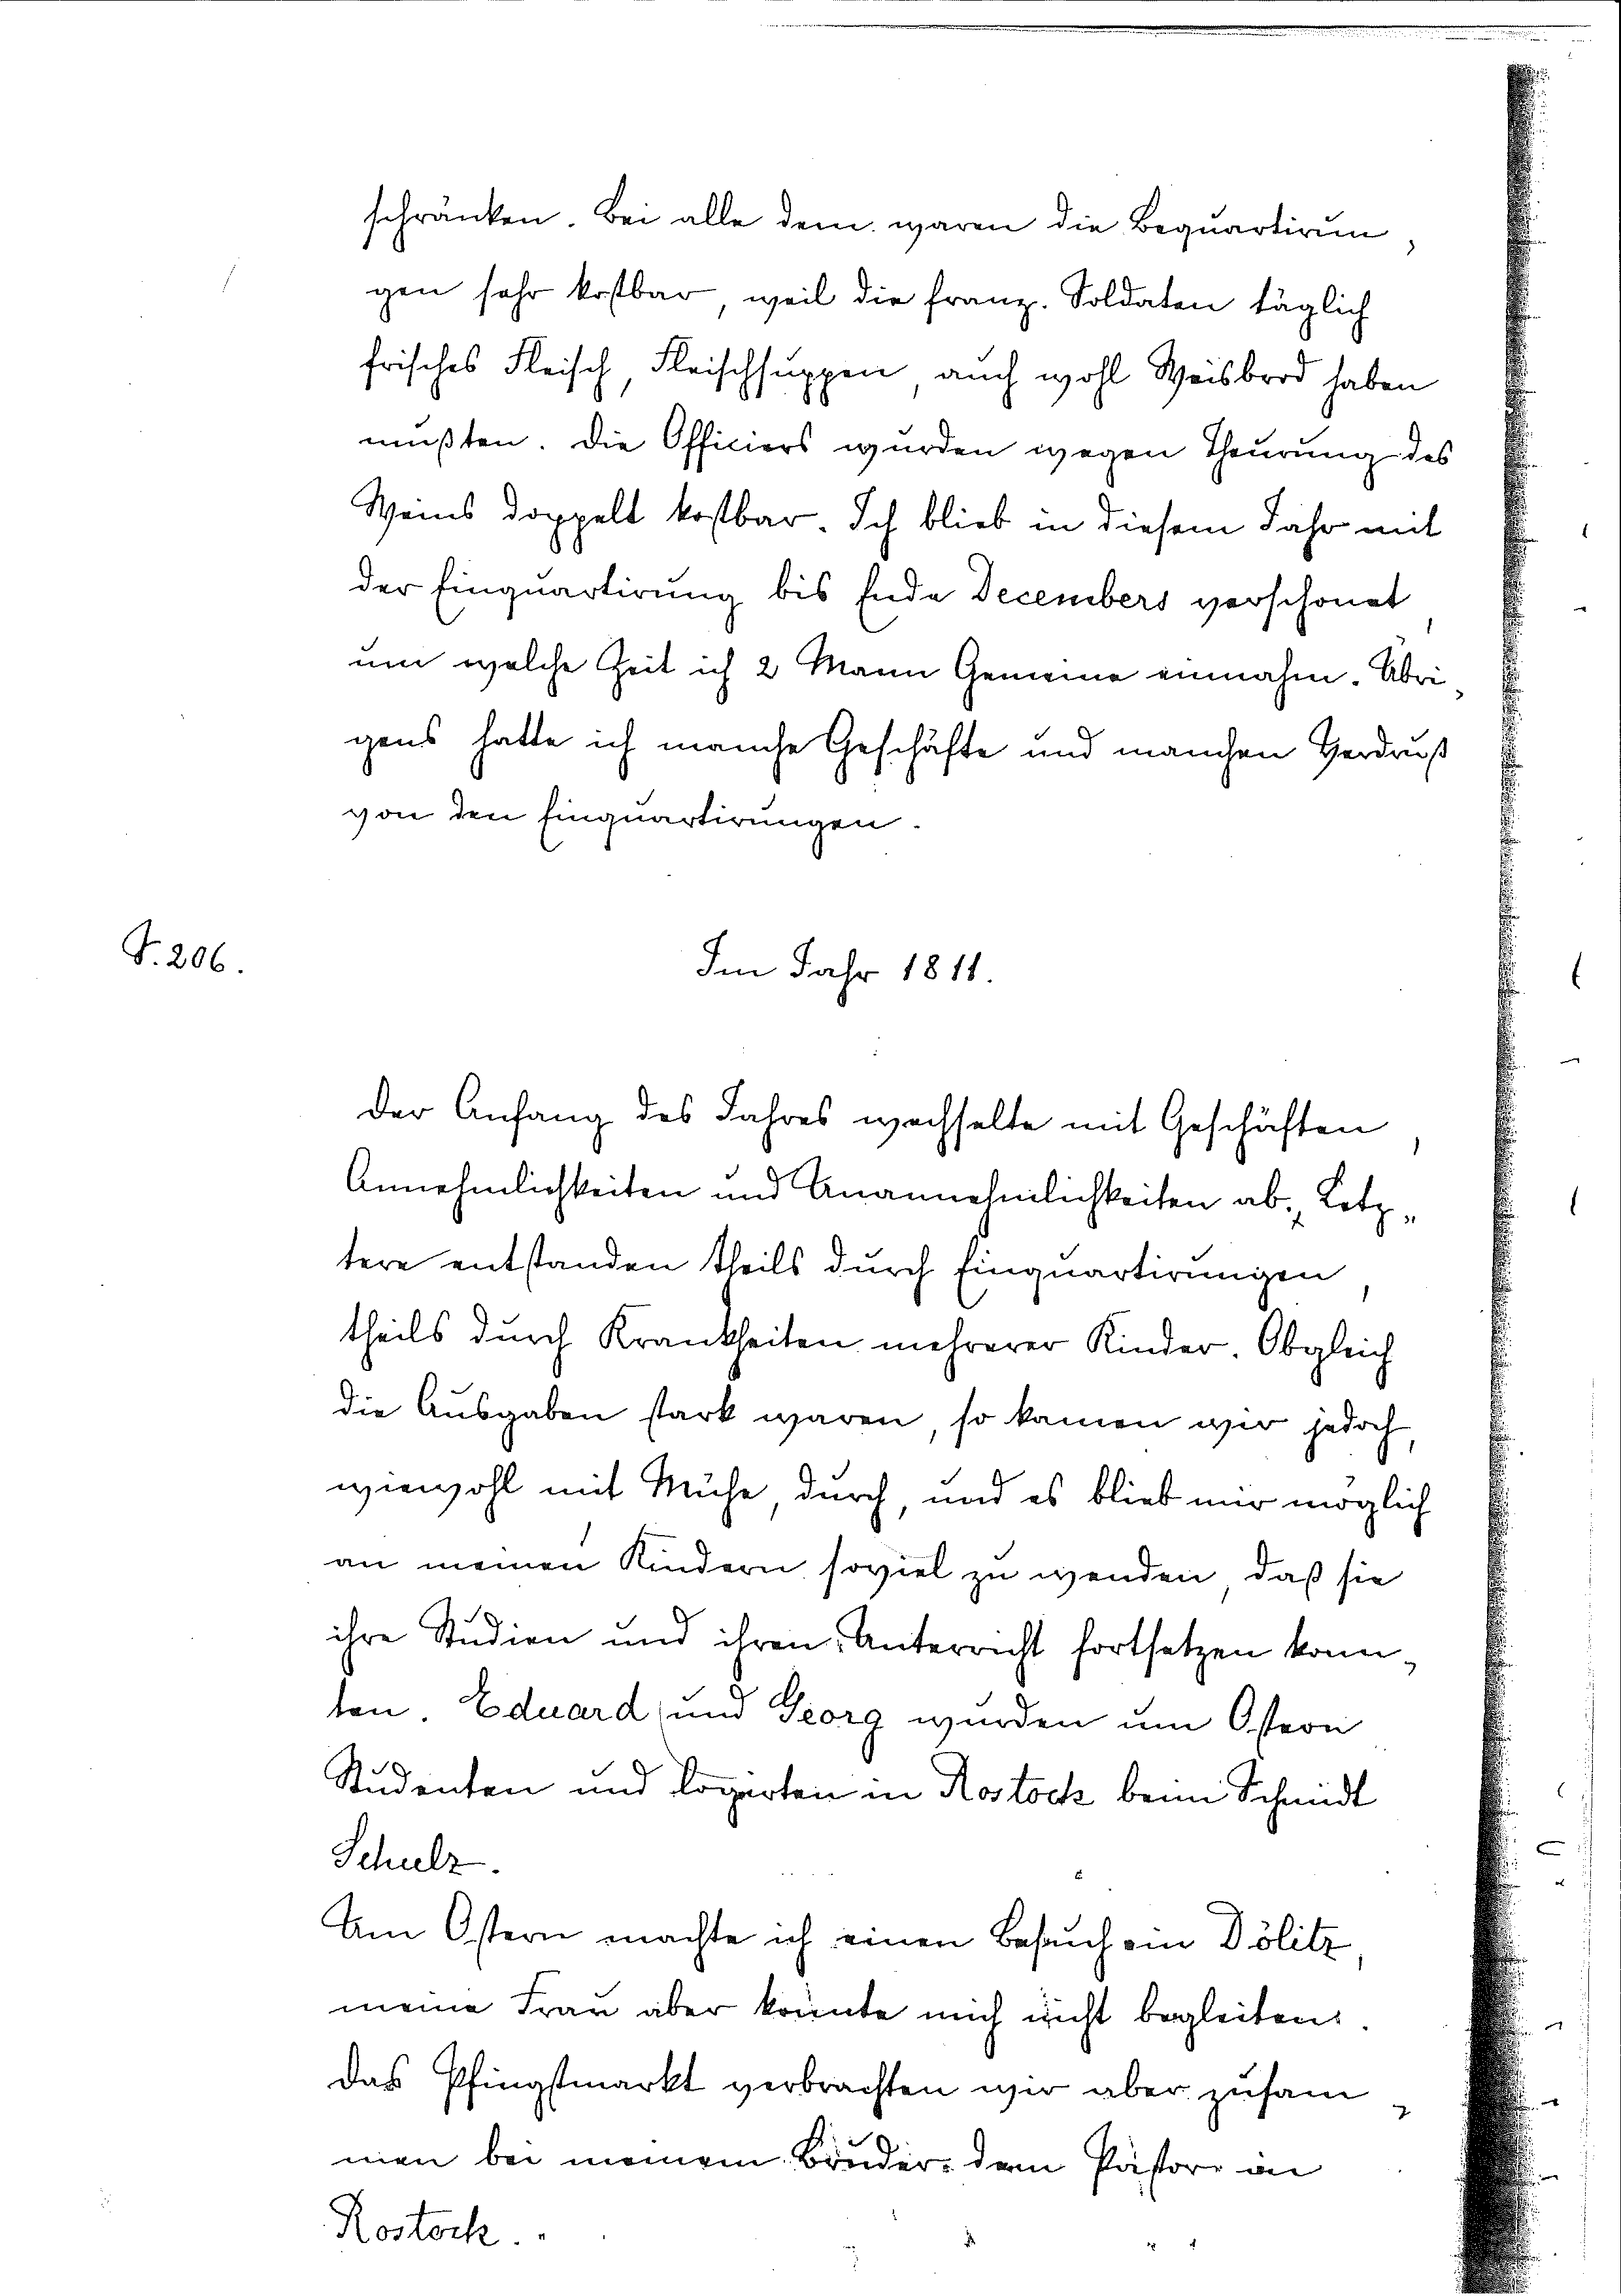 schränken. Bei alle dem waren die Bequartirun-
gen sehr kostbar, weil die franz. Soldaten täglich
frisches Fleisch, Fleischsuppen, auch wohl Weisbrod haben
mußten. Die Officiers wurden wegen Theurung des
Weins doppelt kostbar. Ich blieb in diesem Jahr mit
der Einquartirung bis Ende Decembers verschonet,
um welche Zeit ich 2 Mann Gemeine einnahm. Übri-
gens hatte ich manche Geschäfte und manchen Verdruß
von den Einquartirungen.
S. 206.
Im Jahr 1811.
Der Anfang des Jahres wechselte mit Geschäften,
Annehmlichkeiten und Unannehmlichkeiten ab., Letz-
tere entstanden theils durch Einquartirungen,
theils durch Krankheiten mehrerer Kinder. Obgleich
die Ausgaben stark waren, so kamen wir jedoch,
wiewohl mit Mühe, durch, und es blieb mir möglich
an meinen Kindern soviel zu wenden, daß sie
ihre Studien und ihren Unterricht fortsetzen konn-
ten. Eduard und Georg wurden um Ostern
Studenten und logirten in Rostock beim Schmidt
Schulz.
Um Ostern machte ich einen Besuch in Dölitz,
meine Frau aber konnte mich nicht begleiten.
Das Pfingstmarkt verbrachten wir aber zusam-
men bei meinem Bruder dem Pastor in
Rostock.